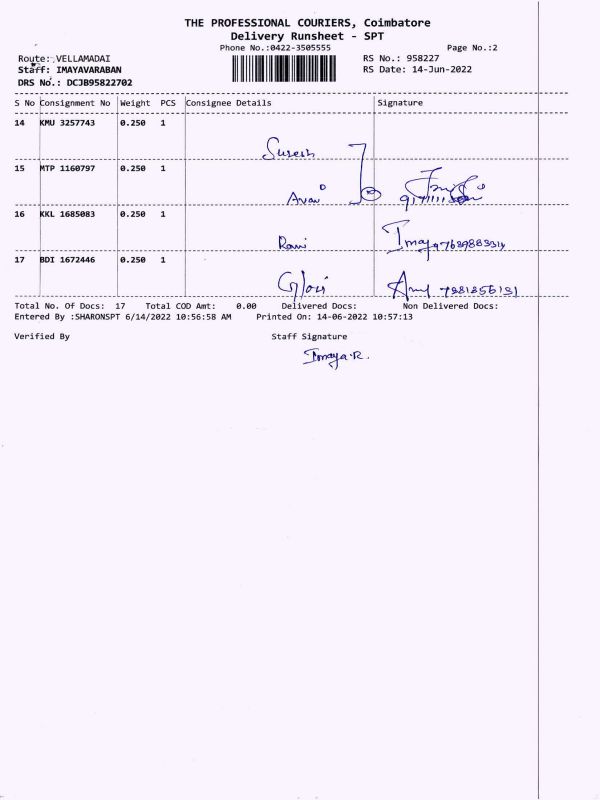 THE PROFESSIONAL COURIERS, Coimbatore
Delivery Runsheet - SPT
Phone No.:0422-3505555 Page No.:2
Route: VELLAMADAI RS No.: 958227
Staff: IMAYAVARABAN RS Date: 14-Jun-2022
DRS No.: DCJB95822702
S No Consignment No Weight PCS Consignee Details Signature
14 KMU 3257743 0.250 1
Suresh
15 MTP 1160797 0.250 1
16 KKL 1685083 0.250 1
Rani
17 BDI 1672446 0.250 1
Total No. Of Docs: 17 Total COD Amt: 0.00 Delivered Docs: Non Delivered Docs:
Entered By :SHARONSPT 6/14/2022 10:56:58 AM Printed On: 14-06-2022 10:57:13
Verified By Staff Signature
Imaya.R.